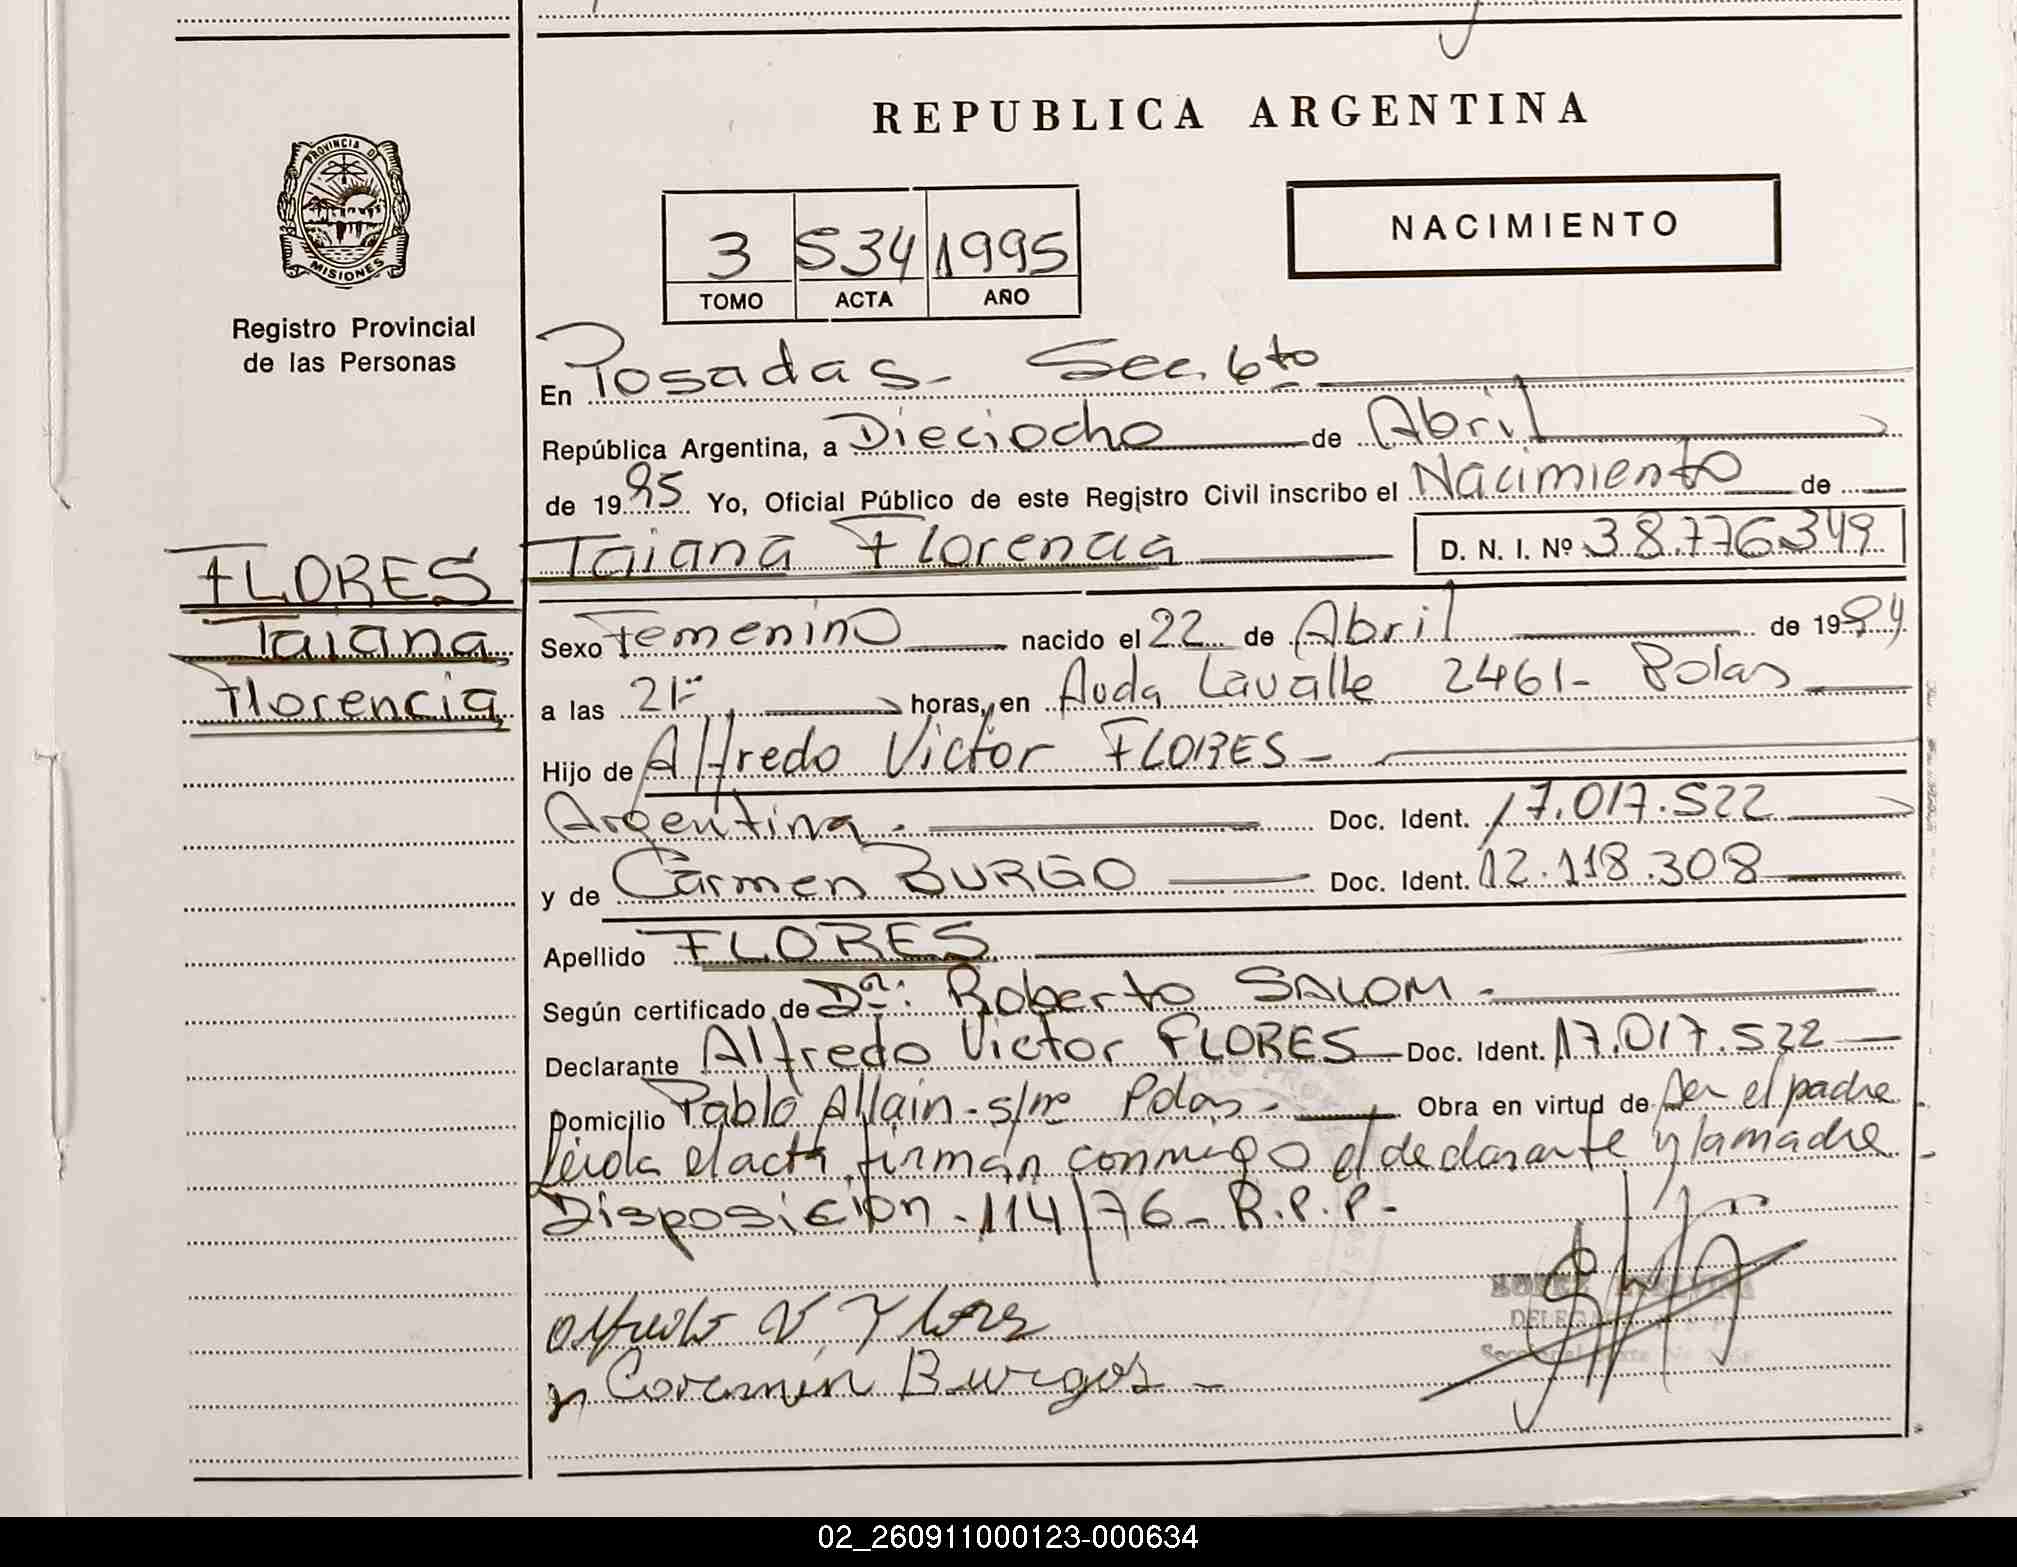 REPUBLICA ARGENTINA
PROVINCIA DE
MISIONES
Registro Provincial
de las Personas
NACIMIENTO
3 534 1995
TOMO ACTA AÑO
En Posadas - Sec. 6to
República Argentina, a Dieciocho de Abril
de 1995 Yo, Oficial Público de este Registro Civil inscribo el Nacimiento de
Taiana Florencia D. N. I. Nº 38.776.349
FLORES
Taiana
Florencia
Sexo Femenino nacido el 22 de Abril de 1994
a las 21 horas, en Avda Lavalle 2461- Pdas
Hijo de Alfredo Victor FLORES -
Argentina - Doc. Ident. 17.017.522
y de Carmen BURGO Doc. Ident. 12.118.308
Apellido FLORES
Según certificado de Roberto SALOM -
Declarante Alfredo Victor FLORES Doc. Ident. 17.017.522
Domicilio Pablo Allain - s/nº Pdas - Obra en virtud de ser el padre
Leida el acta firman conmigo el declarante y la madre
Disposición - 114/76 - R.P.P. -
Alfredo V Flores
Carmen Burgos -
DELEG
02_260911000123-000634